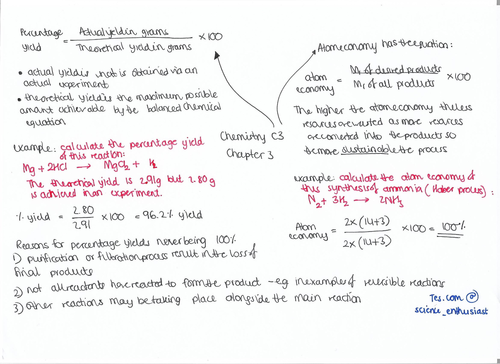 Percentage yield = Actual yield in grams ×100
Theoretical yield in grams
• actual yield is what is obtained via an
actual experiment
• theoretical yield is the maximum possible
amount achievable by the balanced chemical
equation
example: calculate the percentage yield
of this reaction:
Mg + 2HCl → MgCl2 + H2
The theoretical yield is 2.91g but 2.80g
is achieved in an experiment.
% yield = 2.80 ×100 = 96.2% yield
2.91
Chemistry C3
Chapter 3
Atom economy has the equation:
atom economy = Mr of desired products ×100
Mr of all products
The higher the atom economy the less
resources are wasted as more resources
are converted into the products so
the more sustainable the process
example: calculate the atom economy of
this synthesis of ammonia (Haber process):
N2 + 3H2 → 2NH3
Atom economy = 2×(14+3) ×100 = 100%
2×(14+3)
Reasons for percentage yields never being 100%
1) purification or filtration process result in the loss of
final products
2) not all reactants have reacted to form the product - eg in examples of reversible reactions
3) Other reactions may be taking place alongside the main reaction
Tes.com @
science_enthusiast